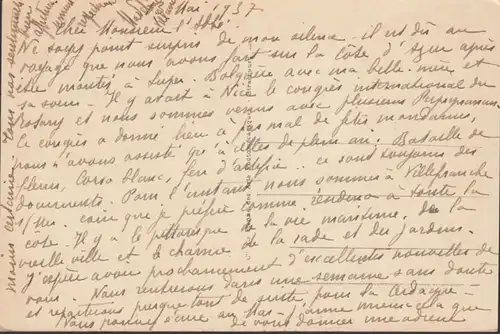 Mai 1937
Cher Monsieur l'Abbé.
Ne soyez point surpris de mon silence - il est dû au
voyage que nous avons fait sur la Côte d'Azur après
être montés à Super. avec ma belle-mère et
sa soeur - Il y avait à Nice le congrès international du
Rotary et nous sommes venus avec plusieurs Perpignanais
Ce congrès a donné lieu à pas mal de fêtes mondaines,
nous n'avons assisté qu'à celles de plein air. Bataille de
fleurs, Corso blanc, feu d'artifice. ce sont toujours des
Pour l'instant nous sommes à Villefranche
s/Mer. coin que je préfère comme à toute la
côte - Il y a le pittoresque de la vie maritime, de la
vieille ville et le charme de la rade et du jardins.
J'espère avoir prochainement d'excellentes nouvelles de
vous. Nous rentrerons dans une semaine sans doute
et repartirons presque tout de suite pour la Cerdagne -
Nous pouvez écrire au Mas - J'aime mieux cela que
de vous donner une adresse
moins certaine - Tous nos sentiments